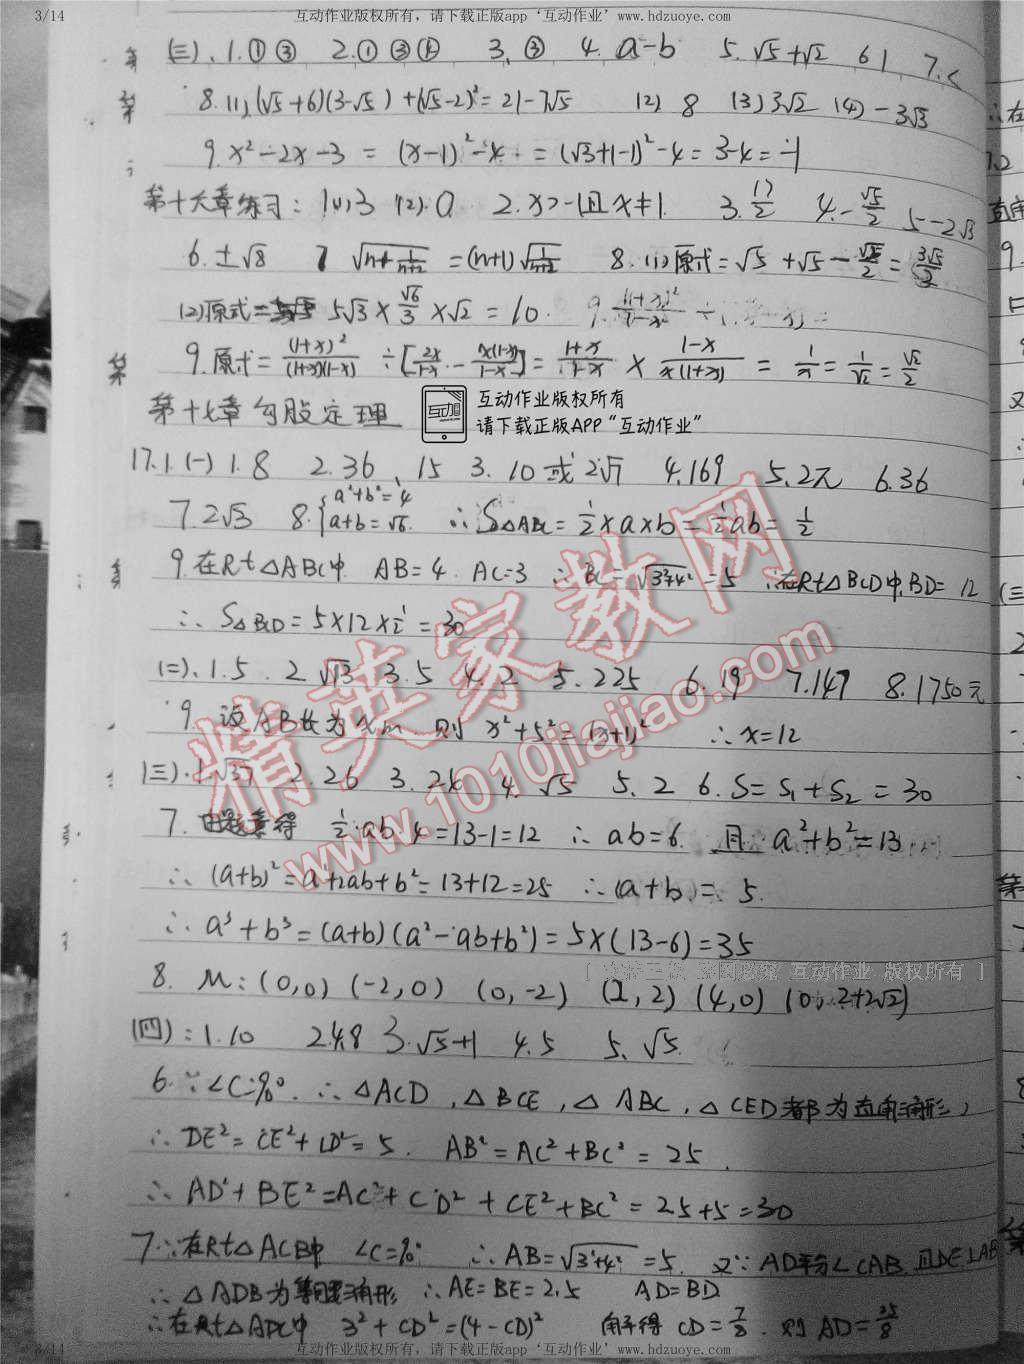 3/14 互动作业版权所有，请下载正版app‘互动作业’www.hdzuoye.com
(三)、1.①③ 2.①③④ 3.③ 4. a-b 5.√5+√2 6 1 7.<
8.(1)(√5+6)(3-√5)+(√5-2)²=21-7√5 (2) 8 (3)3√2 (4)-3√3
9.x²-2x-3 = (x-1)²-4 = (√3+1-1)²-4=3-4=-1
第十六章练习: 1(1)3 (2).0 2.x>-1且x≠1. 3.17/2 4.-√5/2 5-2√3
6.±√8 7 √(n+1/(n+2)) =(n+1)√(1/(n+2)) 8.(1)原式=√5+√5-√5/2=3√5/2
(2)原式= 5√3×√6/3×√2=10.
9.原式=(1+x)²/(1+x)(1-x)÷[2x/1-x-x(1-x)/1-x]=1+x/1-x×1-x/x(1+x)=1/x=1/√2=√2/2
第十七章勾股定理
互动作业版权所有
请下载正版APP“互动作业”
17.1.(一)1.8 2.36、15 3.10或2√7 4.169 5.2元 6.36
7.2√3 8.{a²+b²=4 a+b=√6. ∴S△ABC=½×a×b=½ab=½
9.在Rt△ABC中. AB=4. AC=3 ∴BC=√3²+4²=5 ∴在Rt△BCD中.BD=12
∴S△BCD=5×12×½=30
(二)、1.5. 2 √13 3.5 4.2 5.225 6.19 7.147 8.1750元
9. 设AB长为xm. 则 x²+5²=(x+1)² ∴x=12
(三).1.√37 2.26 3.24 4.√5 5.2 6.S=S₁+S₂=30
7.由题意得 ½ab.4=13-1=12 ∴ab=6. 且a²+b²=13
∴(a+b)²=a²+2ab+b²=13+12=25 ∴(a+b)=5.
∴a³+b³=(a+b)(a²-ab+b²)=5×(13-6)=35
8. M:(0,0) (-2,0) (0,-2) (2,2) (4,0) (0,2+2√2)
互动作业 版权所有 ]
(四):1.10 2.4.8 3.√5+1 4.5 5.√5.
6.∵∠C=90°.∴△ACD,△BCE,△ABC,△CED都为直角三角形
∴DE²=CE²+CD²=5. AB²=AC²+BC²=25.
∴AD²+BE²=AC²+CD²+CE²+BC²=25+5=30
7∵在Rt△ACB中 ∠C=90° ∴AB=√3²+4²=5. 又∵AD平分∠CAB.且DE⊥AB
∴△ADB为等腰三角形 ∴AE=BE=2.5 AD=BD
∴在Rt△ADC中 3²+CD²=(4-CD)² 解得 CD=7/8. 则 AD=25/8
精英家教网
www.1010jiajiao.com
3/14 互动作业版权所有，请下载正版app‘互动作业’www.hdzuoye.com